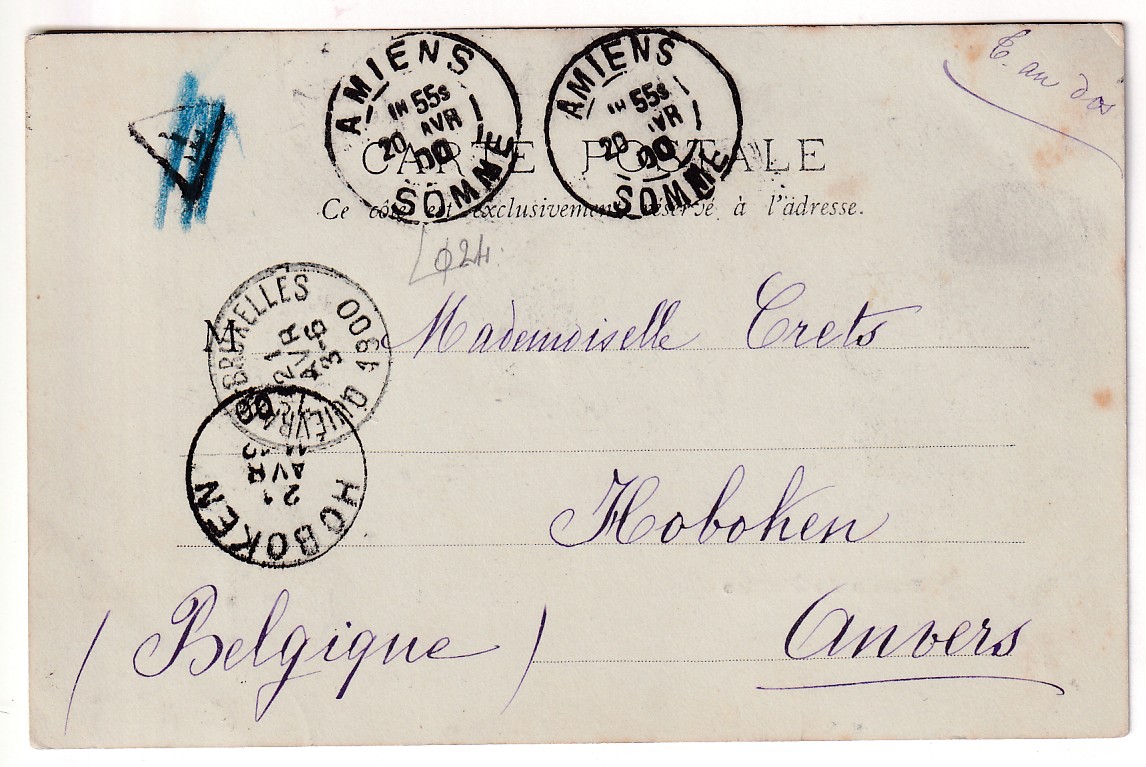 T. au dos
T
AMIENS
1H 55S
20 AVR
00
SOMME
AMIENS
1H 55S
20 AVR
00
SOMME
CARTE POSTALE
Ce côté est exclusivement réservé à l'adresse.
φ24.
M Mademoiselle Crets
BRUXELLES
21
AVR
3-6
1900
HOBOKEN
21
AVR
00
Hoboken
Anvers
(Belgique)